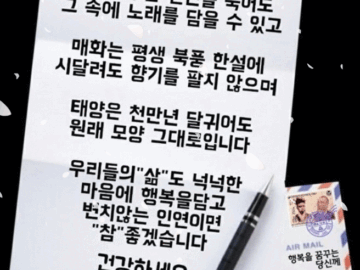 그 속에 노래를 담을 수 있고
매화는 평생 북풍 한설에
시달려도 향기를 팔지 않으며
태양은 천만년 달궈어도
원래 모양 그대로입니다
우리들의"삶"도 넉넉한
마음에 행복을담고
변치않는 인연이면
"참"좋겠습니다
건강하세요
AIR MAIL
행복을 꿈꾸는
당신께